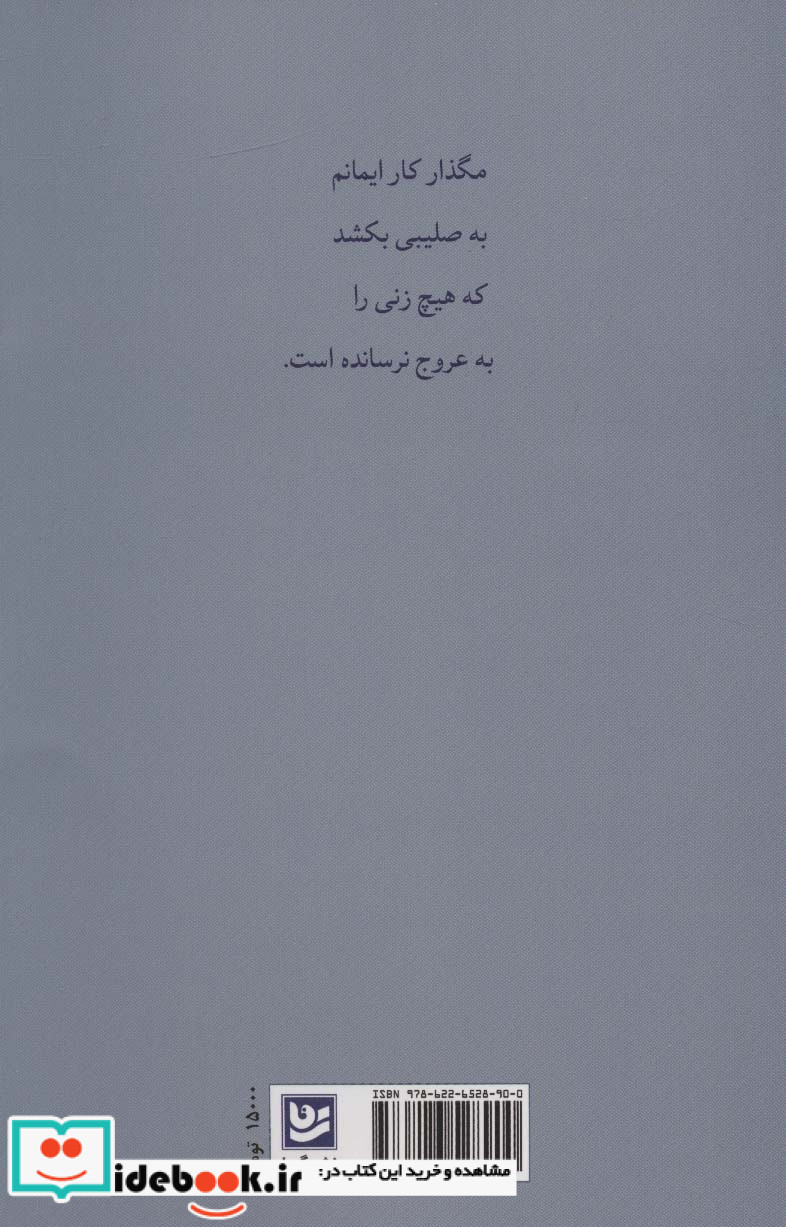 مگذار کار ایمانم
به صلیبی بکشد
که هیچ زنی را
به عروج نرسانده است.
ISBN 978-622-6528-90-0
۱۵۰۰۰
مشاهده و خرید این کتاب در:
idebook.ir